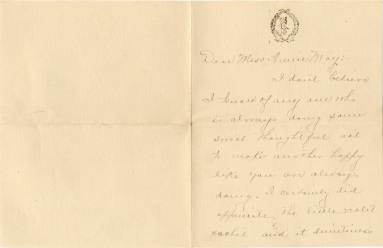 Dear Miss Anne May:
I don't believe
I know of any one who
is always doing some
sweet thoughtful act
to make another happy
like you are always
doing. I certainly did
appreciate the little violet
sachet and it